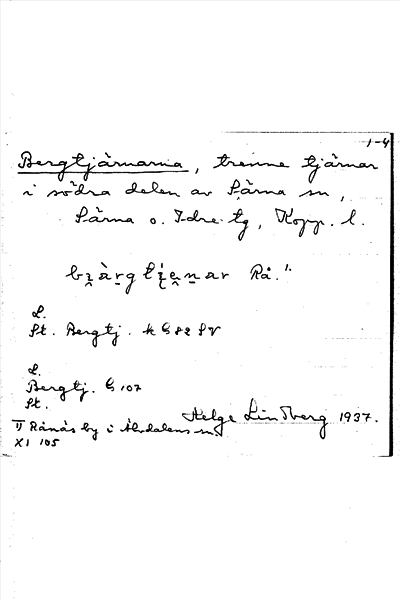 1-4
Bergtjärnarna, trenne tjärnar
i södra delen av Särna sn,
Särna o. Idre tg, Kopp. l.
Rå.¹⁾
L.
St. Bergtj. k G 82 SV
L.
Bergtj. G 107
St.
Helge Lindberg 1937.
1) Rånäs by i Älvdalens sn
XI 105